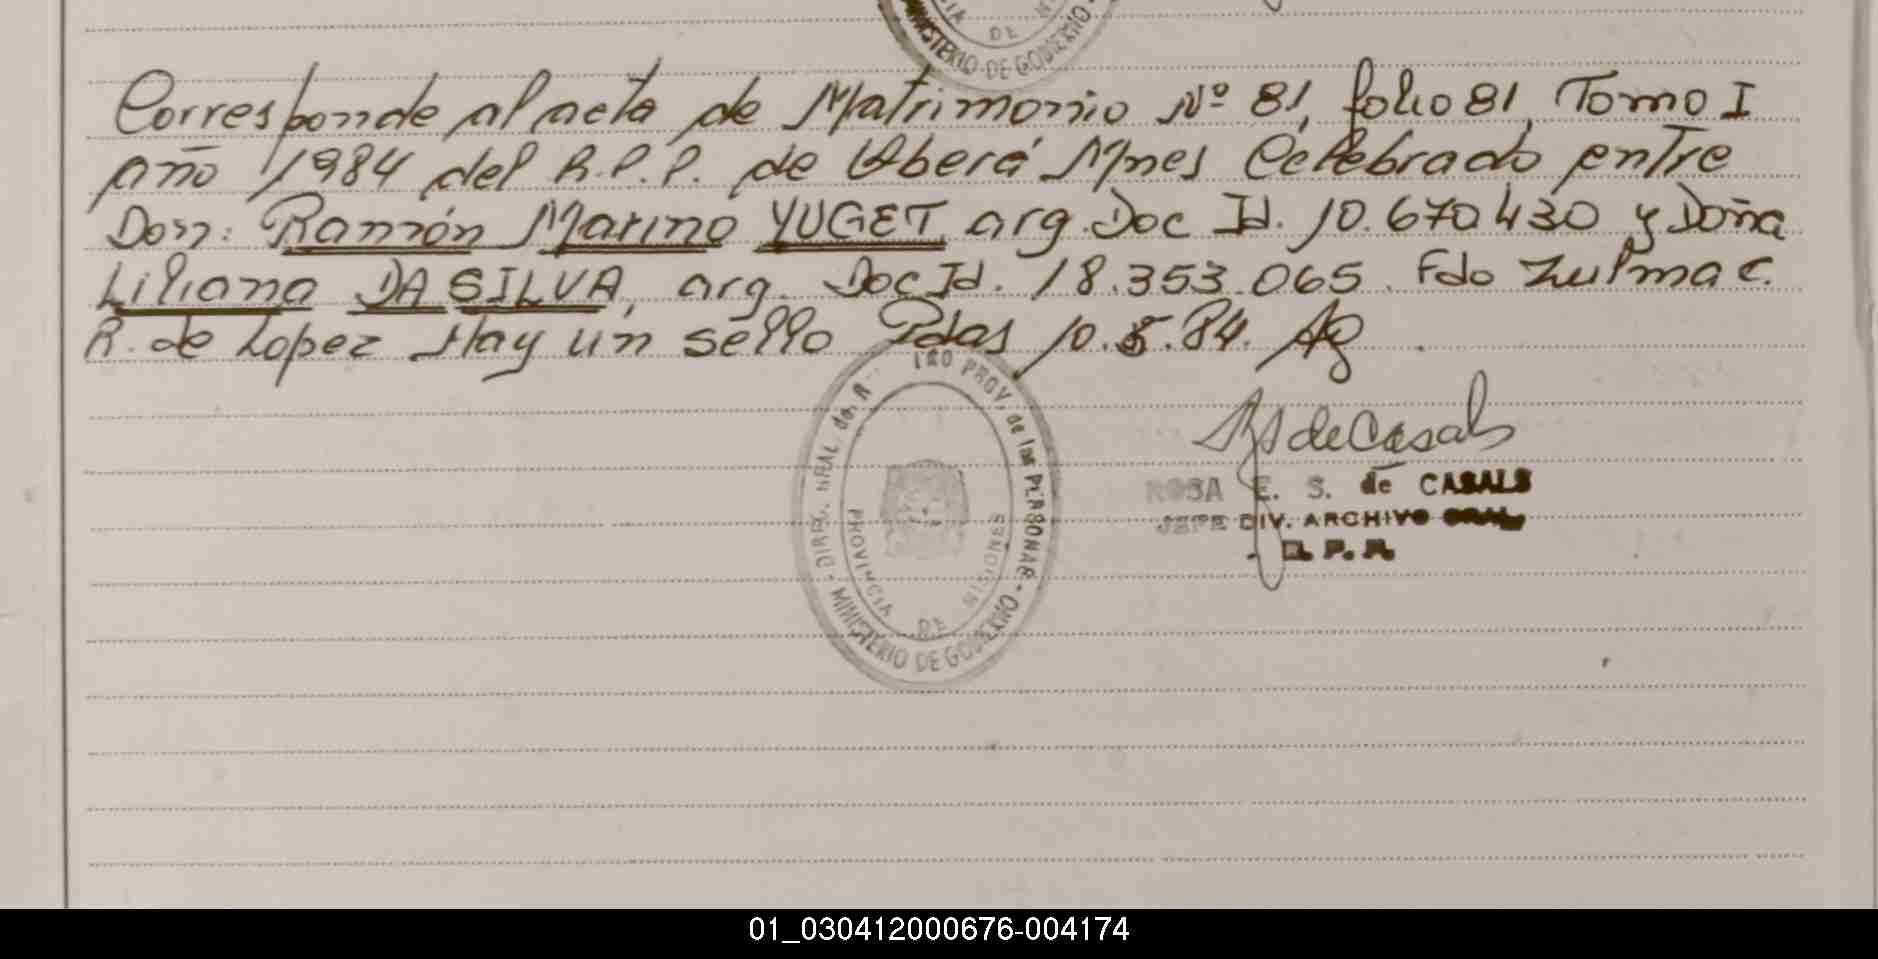 DE
MINISTERIO DE GOBIERNO
Corresponde al acta de Matrimonio Nº 81, folio 81, Tomo I
año 1984 del R.P.P. de Oberá Mnes Celebrado entre
Don: Ramón Marino YUGET, arg. Doc Id. 10.670430 y Doña
Liliana DA SILVA, arg. Doc Id. 18.353.065. Fdo Zulma C.
R. de Lopez Hay un sello Pdas 10.5.84.
PROV. de las PERSONAS - MINISTERIO DE GOBIERNO
PROVINCIA DE MISIONES
de Casals
ROSA E. S. de CASALS
JEFE DIV. ARCHIVO GRAL
R. P. P.
01_030412000676-004174